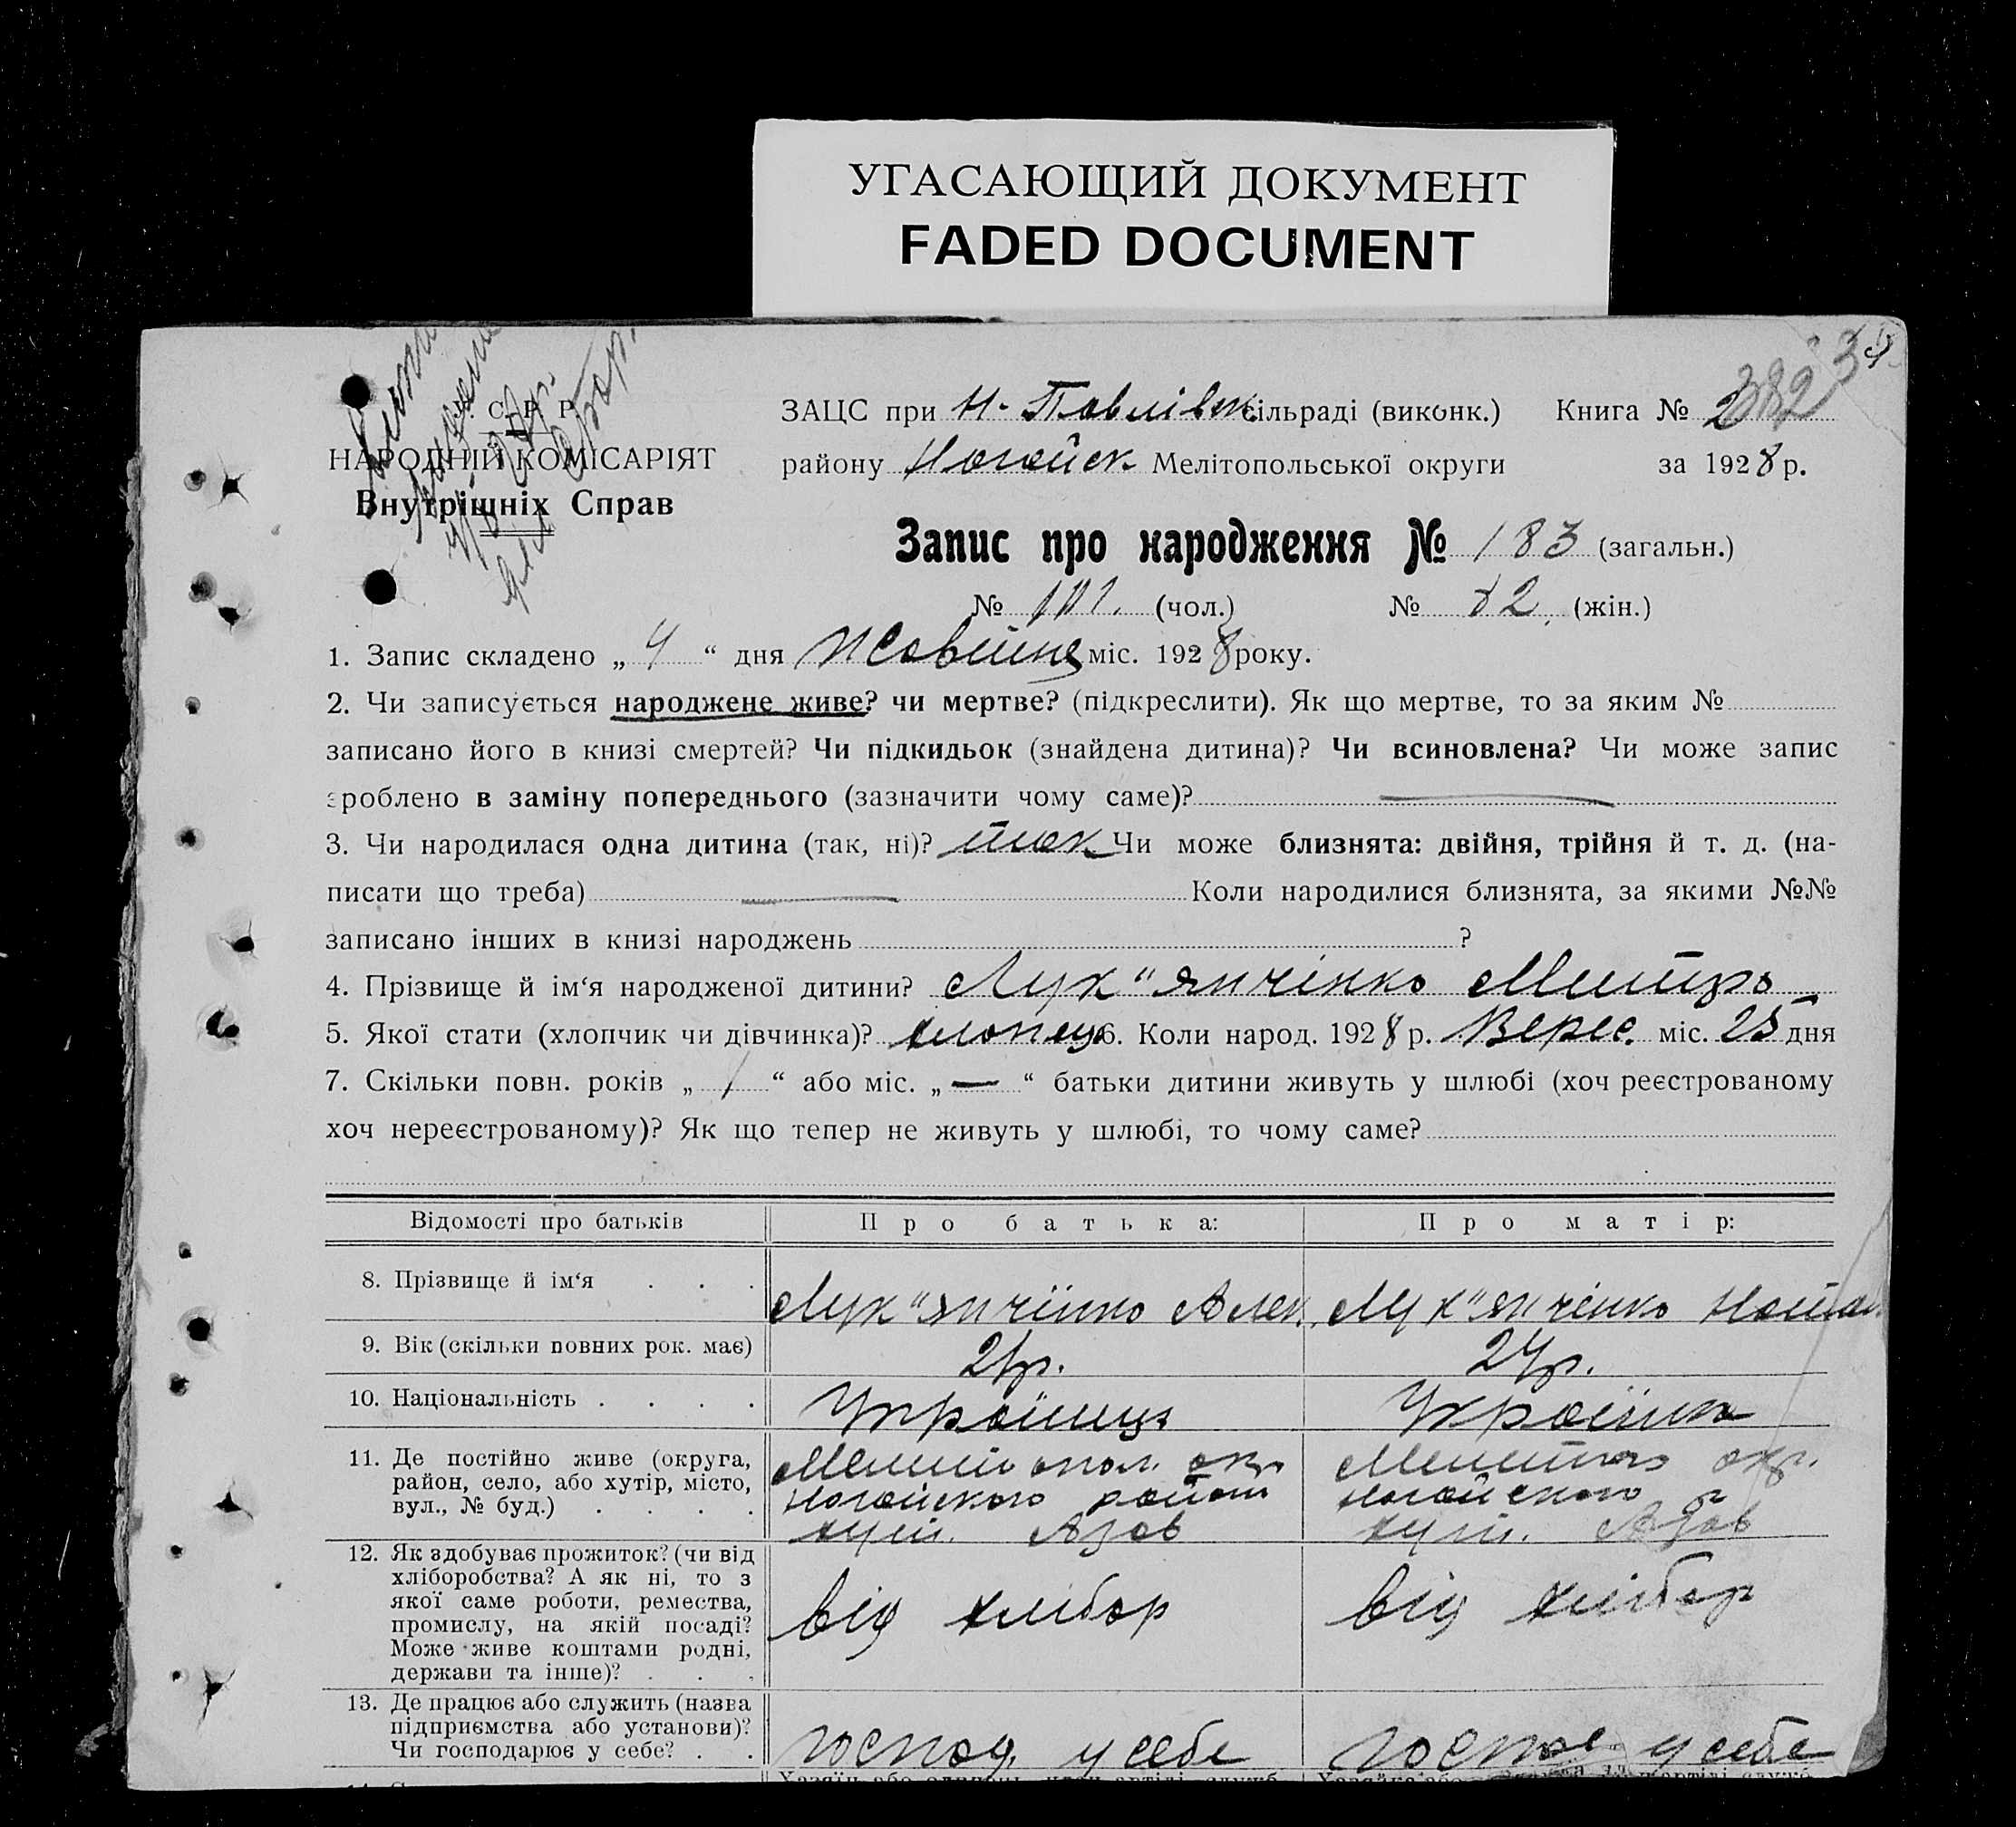 УГАСАЮЩИЙ ДОКУМЕНТ
FADED DOCUMENT
С. Р. Р.
НАРОДНІЙ КОМІСАРІЯТ
Внутрішніх Справ
ЗАЦС при Н-Павлівск сільраді (виконк.) Книга № 2
району Ногайск Мелітопольської округи за 1928 р.
Запис про народження № 183 (загальн.)
№ 101. (чол.) № 82, (жін.)
1. Запис складено „ 4 “ дня Жовтня міс. 1928 року.
2. Чи записується народжене живе? чи мертве? (підкреслити). Як що мертве, то за яким №
записано його в книзі смертей? Чи підкидьок (знайдена дитина)? Чи всиновлена? Чи може запис
зроблено в заміну попереднього (зазначити чому саме)? —
3. Чи народилася одна дитина (так, ні)? так Чи може близнята: двійня, трійня й т. д. (на-
писати що треба) — Коли народилися близнята, за якими №№
записано інших в книзі народжень ?
4. Прізвище й ім‘я народженої дитини? Лук"янчінко Митро
5. Якої стати (хлопчик чи дівчинка)? хлопець 6. Коли народ. 1928 р. Верес. міс. 25 дня
7. Скільки повн. років „ 1 “ або міс. „ — “ батьки дитини живуть у шлюбі (хоч реєстрованому
хоч нереєстрованому)? Як що тепер не живуть у шлюбі, то чому саме?
Відомості про батьків Про батька: Про матір:
8. Прізвище й ім‘я . . . Лук"янчінко Алек. Лук"янчінко Натал.
9. Вік (скільки повних рок. має) 21р. 24р.
10. Національність . . . . Українець Українка
11. Де постійно живе (округа, район, село, або хутір, місто, вул., № буд.) . . . .
Мелітопол. окр. Ногайского район хут. Азов
Мелітоп. окр. Ногайского хут. Азов
12. Як здобуває прожиток? (чи від хліборобства? А як ні, то з якої саме роботи, ремества, промислу, на якій посаді? Може живе коштами родні, держави та інше)? . . .
від хлібор
від хлібор
13. Де працює або служить (назва підприємства або установи)? Чи господарює у себе? . .
господ. у себе
господ. у себе